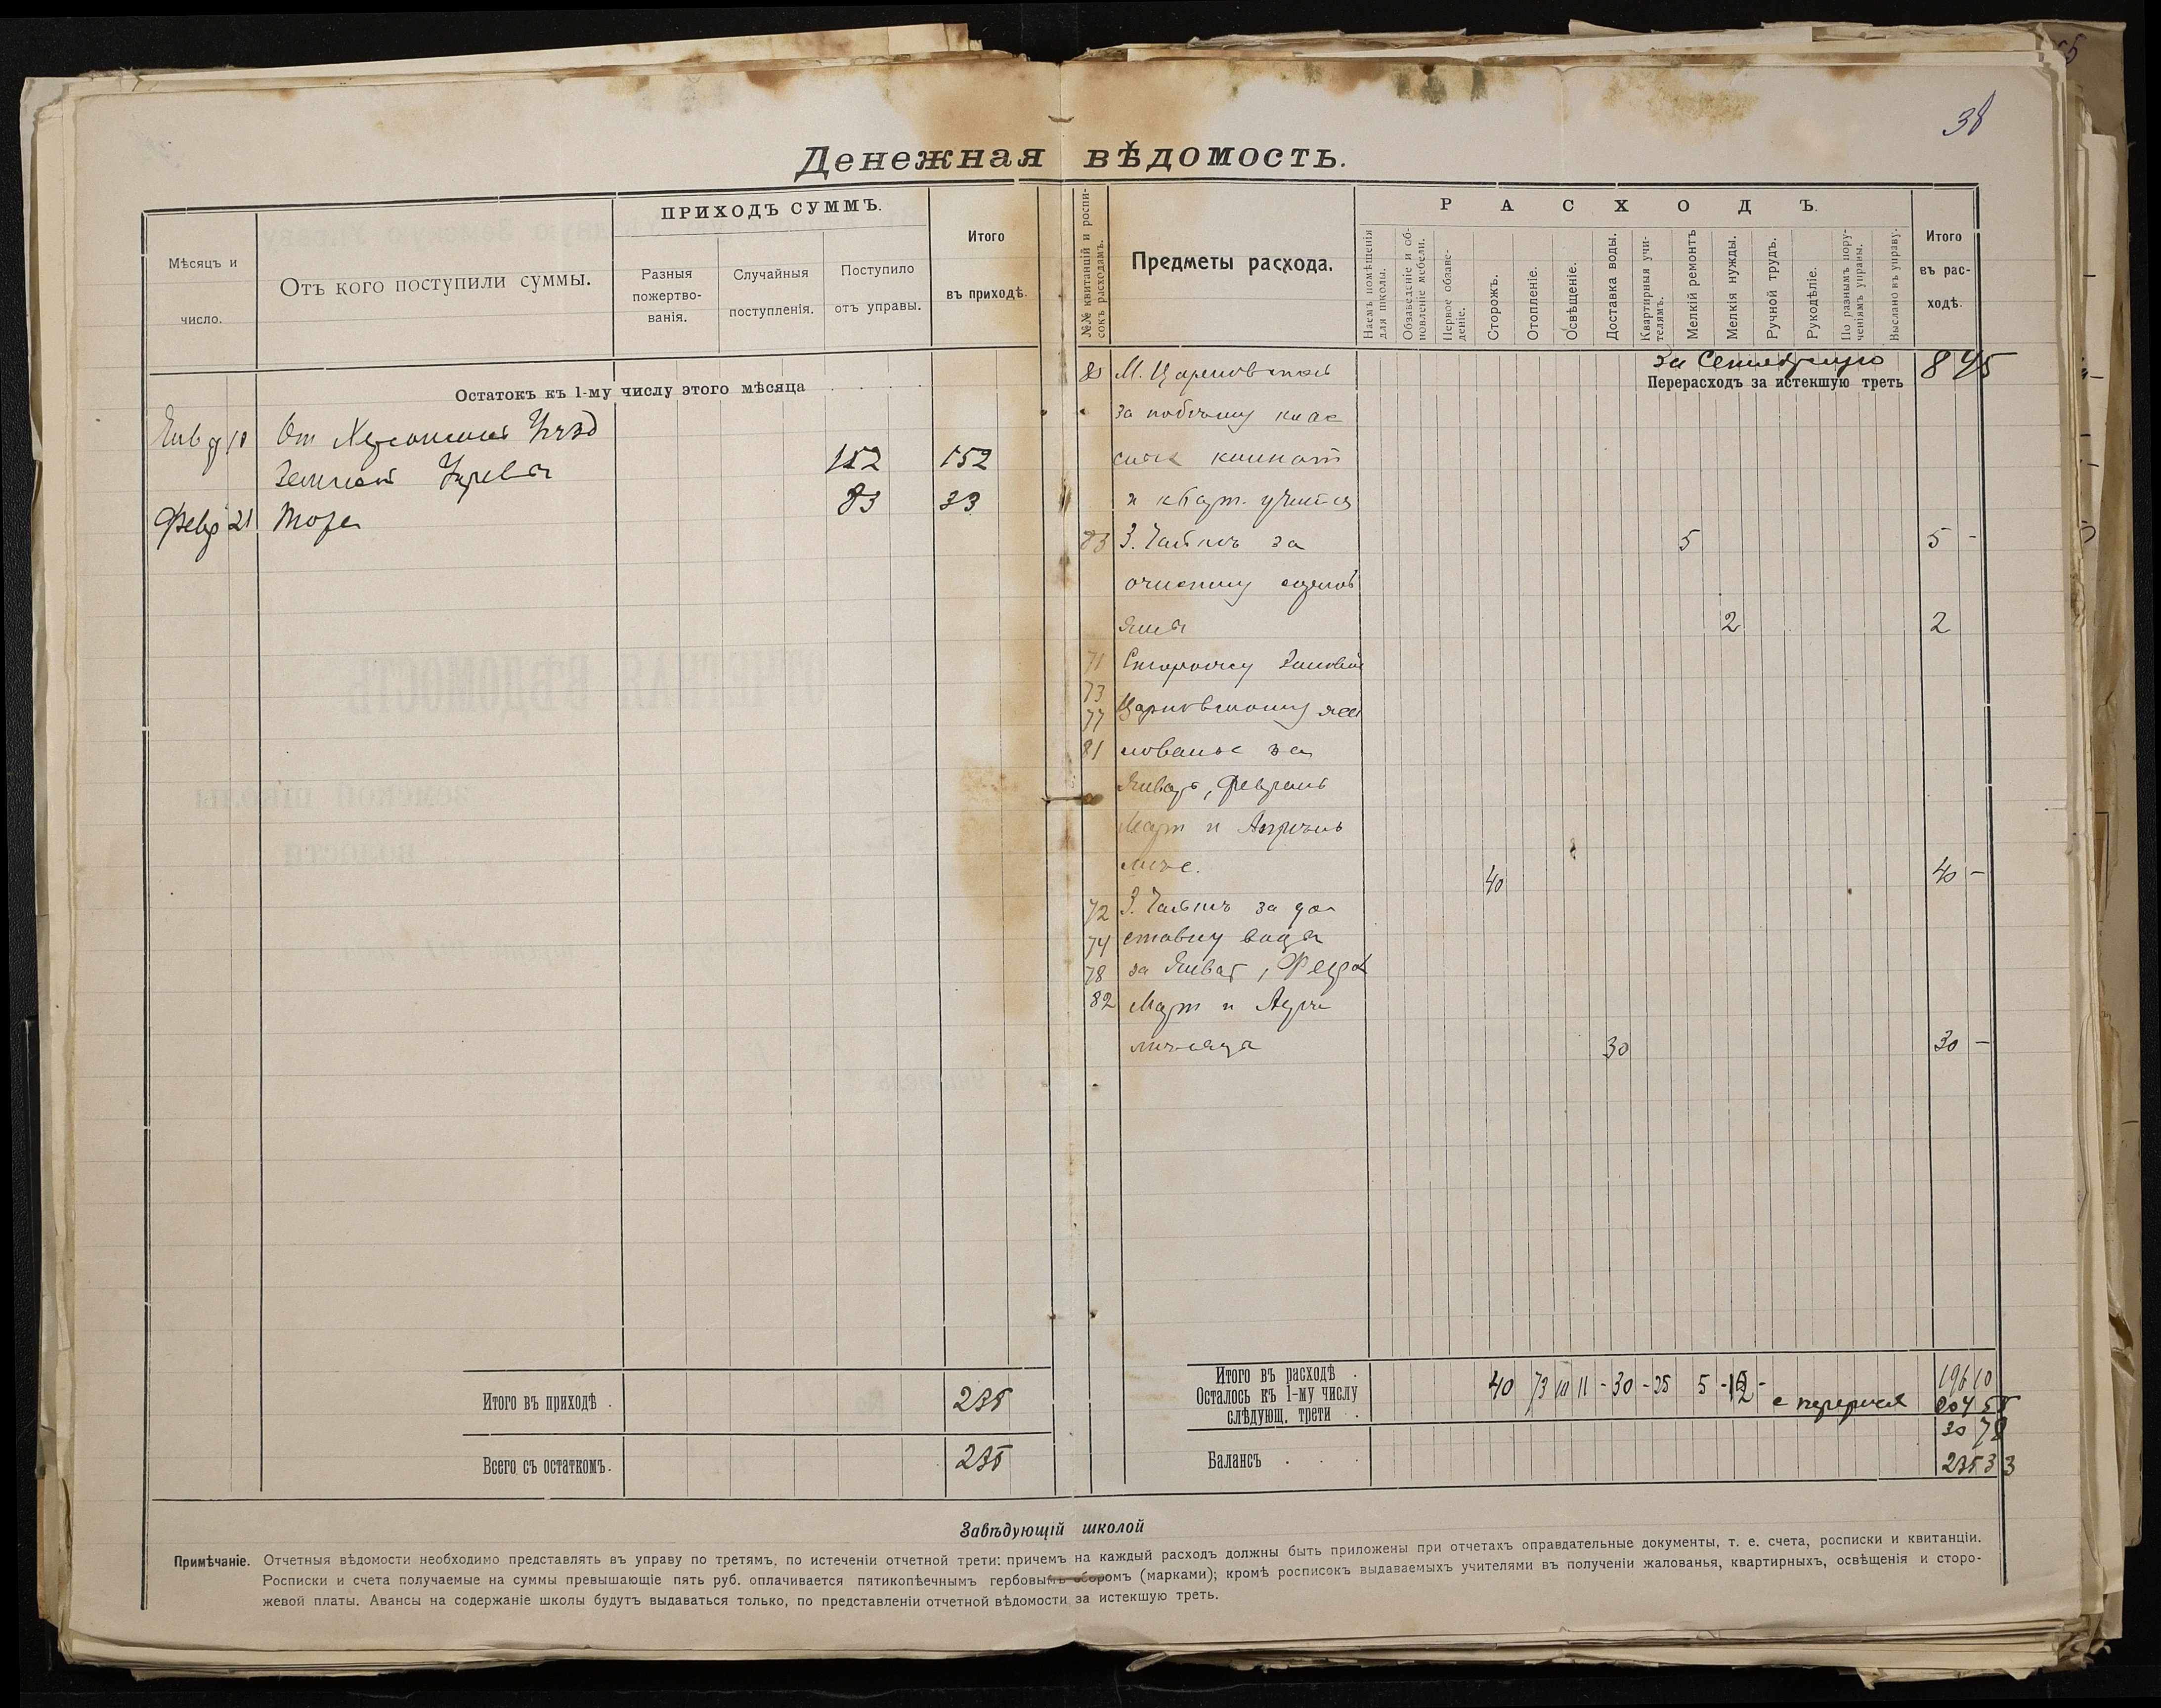 38
Денежная вѣдомость.
Мѣсяцъ и число.
Отъ кого поступили суммы.
ПРИХОДЪ СУММЪ.
Разныя пожертво-
ванія.
Случайныя поступленія.
Поступило отъ управы.
Итого въ приходѣ.
Остатокъ къ 1-му числу этого мѣсяца
Янв 10 От Херсонской Уѣзд
Земской Управы 152 152
Февр 21 Тоже 83 33
Итого въ приходѣ . 235
Всего съ остаткомъ. 235
№№ квитанцій и роспи-
сокъ расходамъ.
Предметы расхода.
РАСХОДЪ.
Наемъ помѣщенія
для школы.
Обзаведеніе и об-
новленіе мебели.
Первое обзаве-
деніе.
Сторожъ.
Отопленіе.
Освѣщеніе.
Доставка воды.
Квартирныя учи-
телямъ.
Мелкій ремонтъ
Мелкія нужды.
Ручной трудъ.
Рукодѣліе.
По разнымъ пору-
ченіямъ управы.
Выслано въ управу.
Итого
въ рас-
ходѣ.
За
Перерасходъ за истекшую треть 8 45
М.
за побѣлку клас
комнат
и кварт.
83 З. за 5 5 -
очистку
2 2
71 Сторожу
73
77
81 лованье за
Январь, Февраль
Март и Апрѣль
мѣс. 40 40 -
72 З. за до
74 ставку воды
78 за Январ,
82 Март и
мѣсяца 30 30 -
Итого въ расходѣ . 40 73 10 11 - 30 - 25 5 - - 196 10
Осталось къ 1-му числу
слѣдующ. трети . с 204 55
30 78
Балансъ . . . 235 33
Завѣдующій школой
Примѣчаніе. Отчетныя вѣдомости необходимо представлять въ управу по третямъ, по истеченіи отчетной трети: причемъ на каждый расходъ должны быть приложены при отчетахъ оправдательные документы, т. е. счета, росписки и квитанціи.
Росписки и счета получаемые на суммы превышающіе пять руб. оплачивается пятикопѣечнымъ гербовымъ сборомъ (марками); кромѣ росписокъ выдаваемыхъ учителями въ полученіи жалованья, квартирныхъ, освѣщенія и сторо-
жевой платы. Авансы на содержаніе школы будутъ выдаваться только, по представленіи отчетной вѣдомости за истекшую треть.